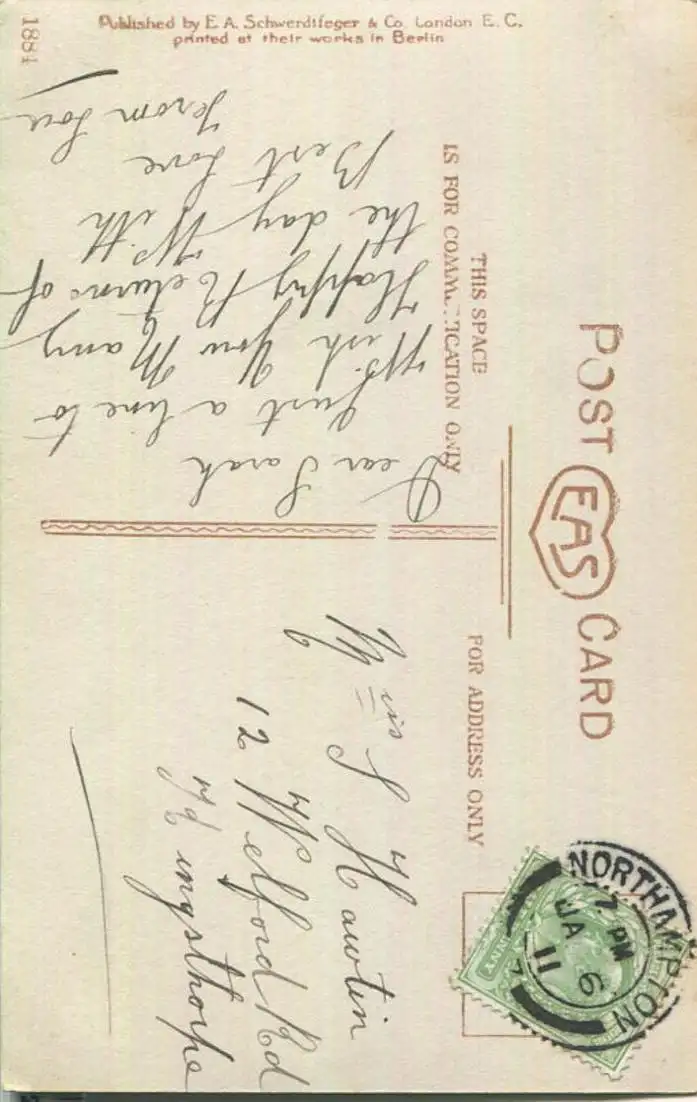 POST CARD
EAS
THIS SPACE
IS FOR COMMUNICATION ONLY
FOR ADDRESS ONLY
Dear Sarah
Just a line to
Wish You Many
Happy Returns of
the day With
Best Love
From Lou
Miss S Hawtin
12 Welford Rd
Kingsthorpe
NORTHAMPTON
7 PM
JA 6
11
Published by E. A. Schwerdtfeger & Co. London E. C.
printed at their works in Berlin
1881